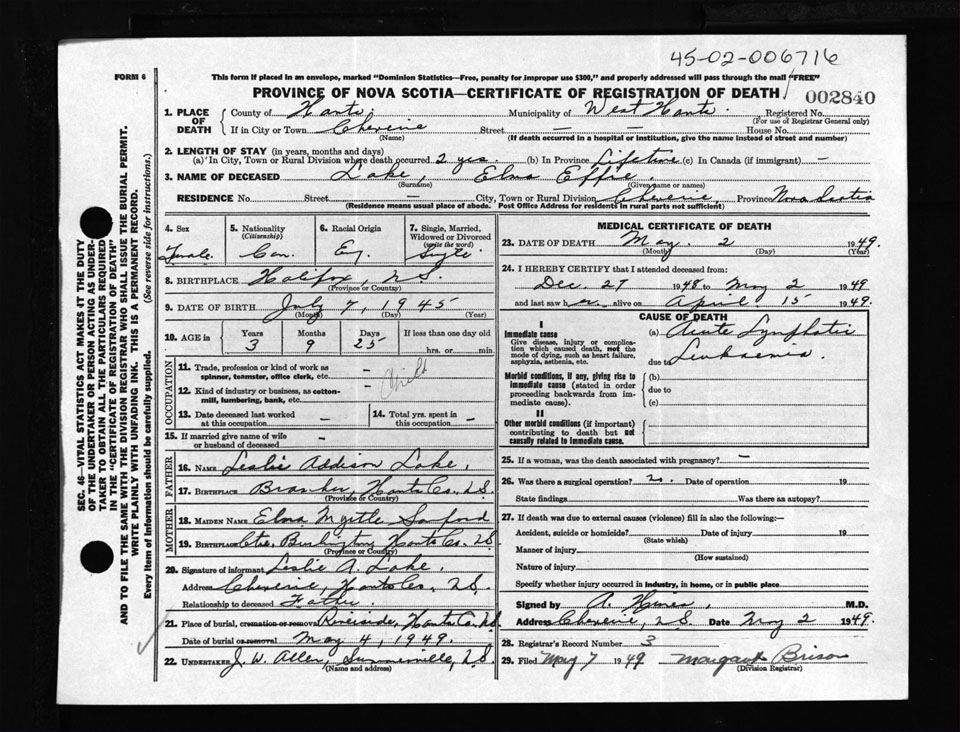 45-02-006716
FORM 6
This form if placed in an envelope, marked "Dominion Statistics—Free, penalty for improper use $300," and properly addressed will pass through the mail "FREE"
PROVINCE OF NOVA SCOTIA—CERTIFICATE OF REGISTRATION OF DEATH
002840
1. PLACE OF DEATH
County of Hants. Municipality of West Hants. Registered No.
(For use of Registrar General only)
If in City or Town Cheverie Street — — House No. —
(Name) (If death occurred in a hospital or institution, give the name instead of street and number)
2. LENGTH OF STAY (in years, months and days)
(a) In City, Town or Rural Division where death occurred 2 yrs. (b) In Province Lifetime (c) In Canada (if immigrant) —
3. NAME OF DECEASED Lake, Elma Effie.
(Surname) (Given name or names)
RESIDENCE No. Street — City, Town or Rural Division Cheverie, Province Nova Scotia
(Residence means usual place of abode. Post Office Address for residents in rural parts not sufficient)
4. Sex
Female
5. Nationality
(Citizenship)
Can.
6. Racial Origin
Eng.
7. Single, Married, Widowed or Divorced
(write the word)
Single
8. BIRTHPLACE Halifax N.S.
(Province or Country)
9. DATE OF BIRTH July 7, 1945
(Month) (Day) (Year)
10. AGE in
Years 3
Months 9
Days 25
If less than one day old
hrs. or min.
OCCUPATION
11. Trade, profession or kind of work as spinner, teamster, office clerk, etc. —
Child
12. Kind of industry or business, as cotton-mill, lumbering, bank, etc. —
13. Date deceased last worked at this occupation —
14. Total yrs. spent in this occupation —
15. If married give name of wife or husband of deceased —
FATHER
16. NAME Leslie Addison Lake,
17. BIRTHPLACE Hants Co., N.S.
(Province or Country)
MOTHER
18. MAIDEN NAME Elma Myrtle Sanford
19. BIRTHPLACE Ctre. Burlington Hants Co. N.S
(Province or Country)
20. Signature of informant Leslie A. Lake.
Address Cheverie, Hants Co., N.S,
Relationship to deceased Father.
21. Place of burial, cremation or removal Riverside, Hants Co., N.S.
Date of burial or removal May 4, 1949.
22. UNDERTAKER J. W. Allen, Summerville, N.S.
(Name and address)
MEDICAL CERTIFICATE OF DEATH
23. DATE OF DEATH May. 2 1949.
(Month) (Day) (Year)
24. I HEREBY CERTIFY that I attended deceased from:
Dec. 27 1948 to May 2 1949
and last saw h er alive on April. 15 1949.
CAUSE OF DEATH
I
Immediate cause
Give disease, injury or complication which caused death, not the mode of dying, such as heart failure, asphyxia, asthenia, etc.
(a) Acute Lymphatic
due to Leukaemia.
Morbid conditions, if any, giving rise to immediate cause (stated in order proceeding backwards from immediate cause).
(b)
due to
(c)
II
Other morbid conditions (if important) contributing to death but not causally related to immediate cause.
25. If a woman, was the death associated with pregnancy? —
26. Was there a surgical operation? no. Date of operation 19
State findings Was there an autopsy?
27. If death was due to external causes (violence) fill in also the following:—
Accident, suicide or homicide? Date of injury 19
(State which)
Manner of injury
(How sustained)
Nature of injury
Specify whether injury occurred in industry, in home, or in public place
Signed by A. M.D.
Address Cheverie, N.S. Date May 2 1949.
28. Registrar's Record Number 3
29. Filed May 7 1949 Margaret Brison
(Division Registrar)
SEC. 46—VITAL STATISTICS ACT MAKES IT THE DUTY
OF THE UNDERTAKER OR PERSON ACTING AS UNDER-
TAKER TO OBTAIN ALL THE PARTICULARS REQUIRED
IN THE "CERTIFICATE OF REGISTRATION OF DEATH"
AND TO FILE THE SAME WITH THE DIVISION REGISTRAR WHO SHALL ISSUE THE BURIAL PERMIT.
WRITE PLAINLY WITH UNFADING INK. THIS IS A PERMANENT RECORD.
Every item of information should be carefully supplied. (See reverse side for instructions.)